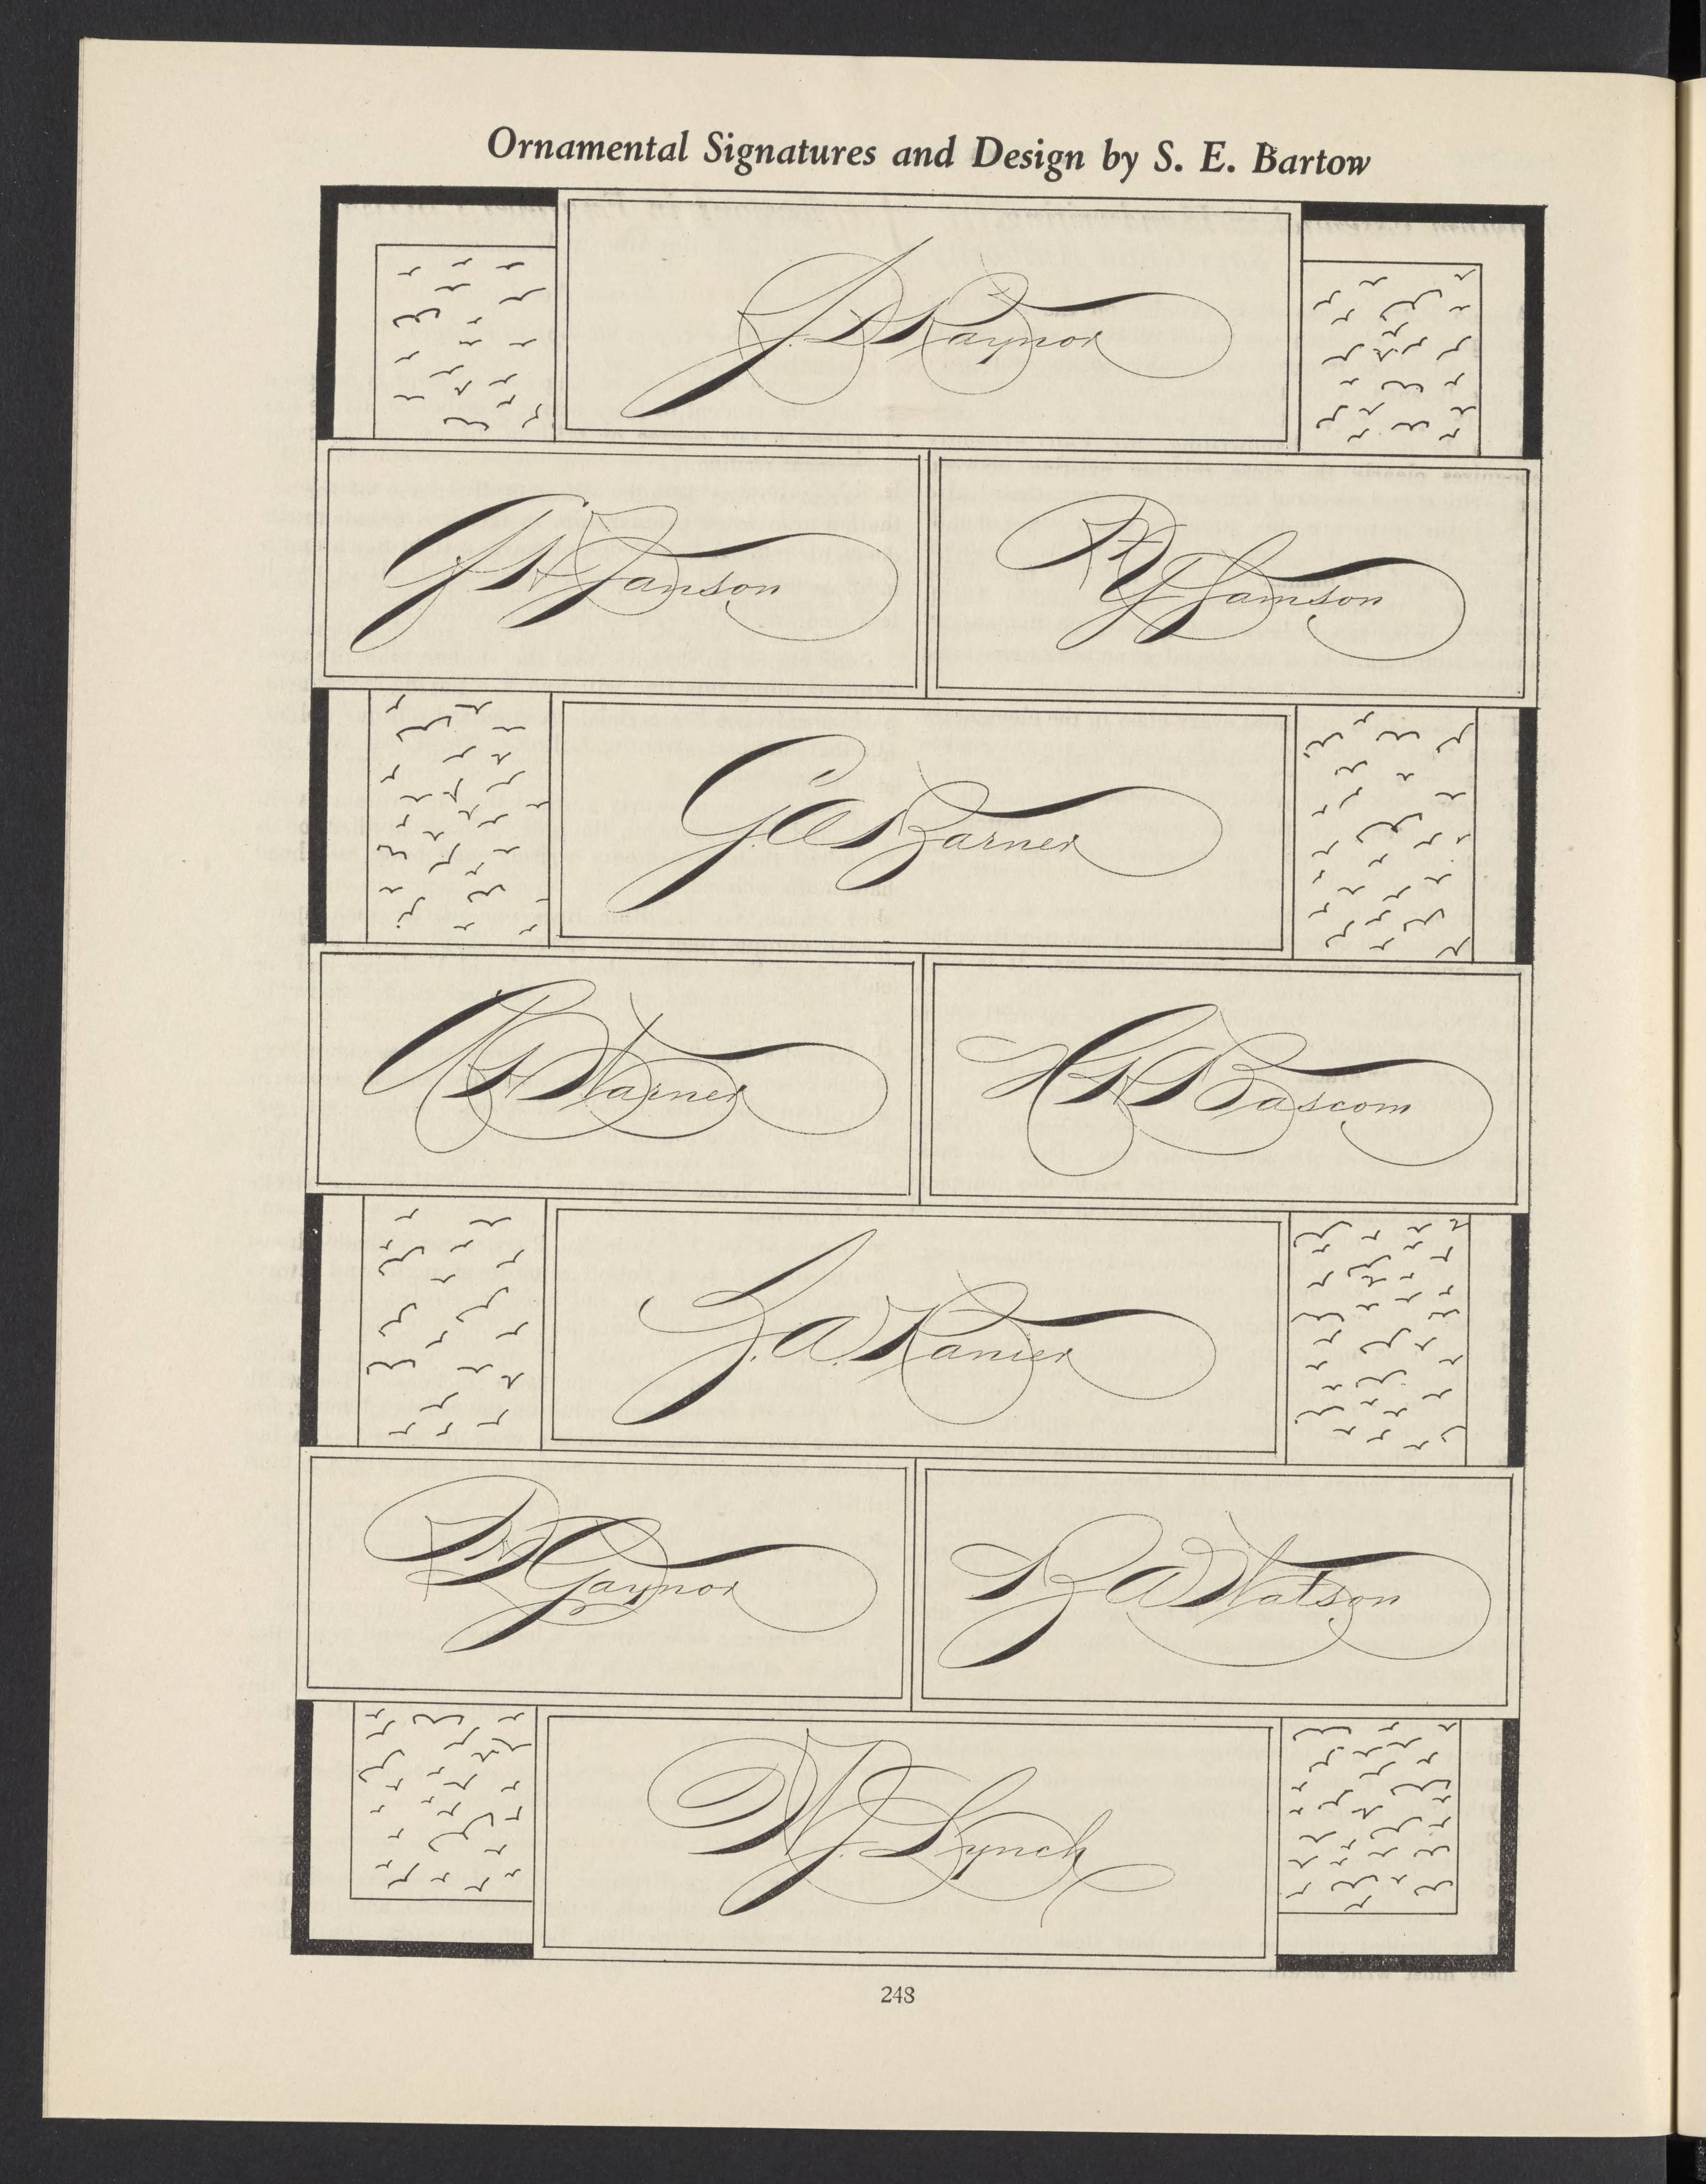 Ornamental Signatures and Design by S. E. Bartow
Raynor
Janson
Samson
G. A. Zarner
Warner
Bascom
J. A. Ranier
Gaynor
Watson
Lynch
248